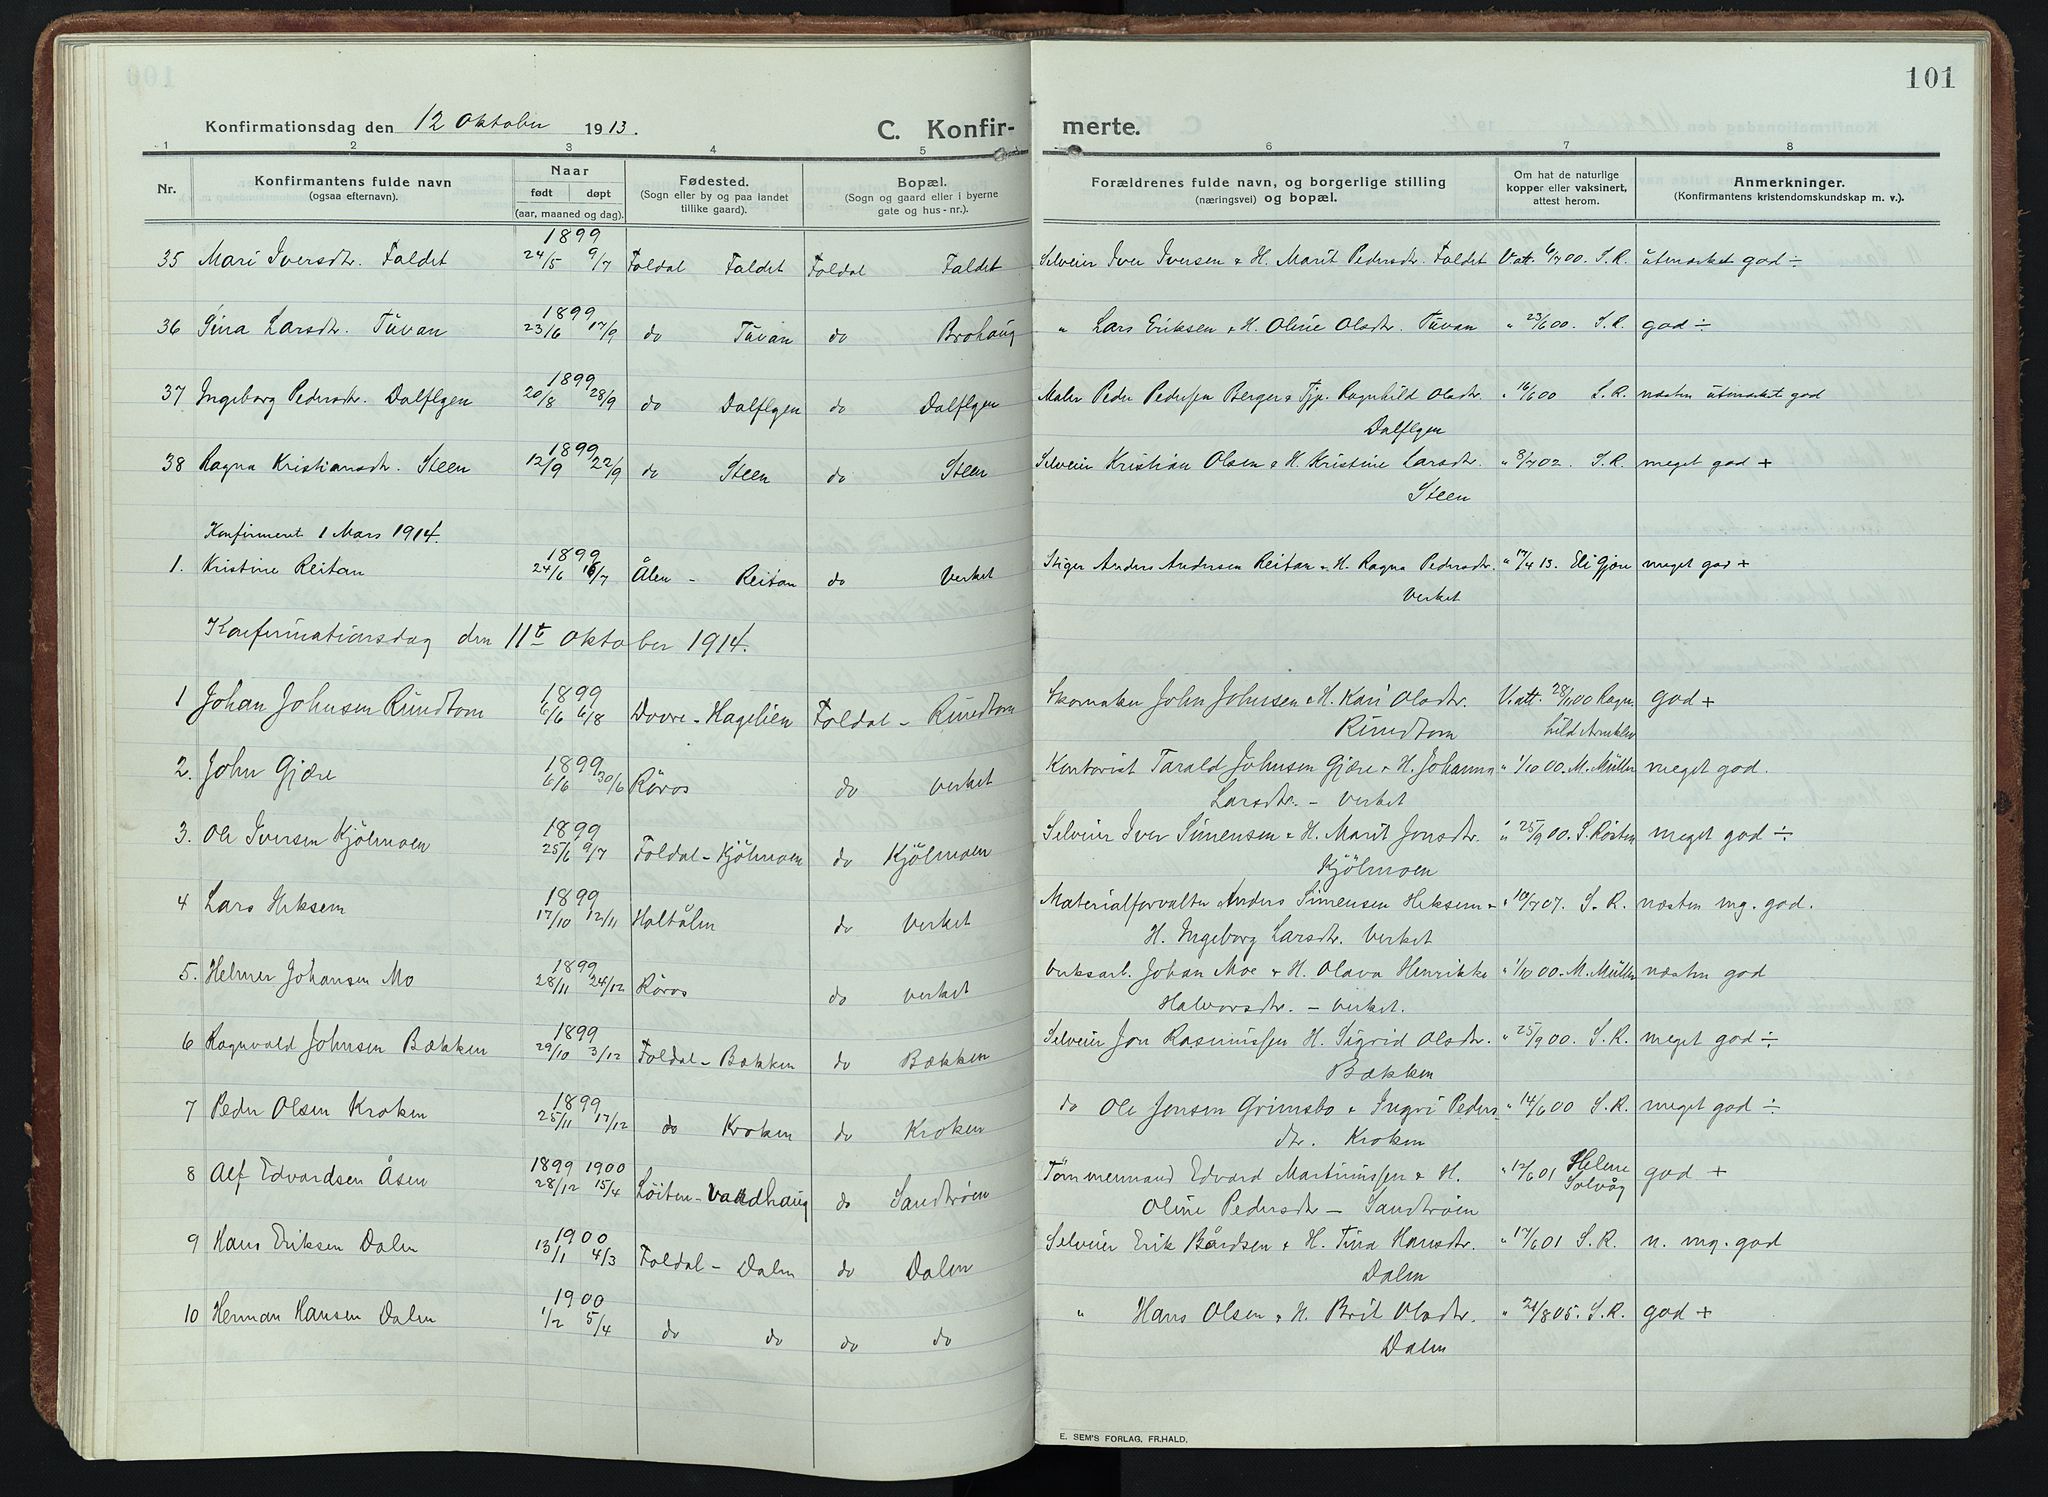 101
Konfirmationsdag den 12 Oktober 1913.
C. Konfir- merte.
1 2 3 4 5 6 7 8
Nr. Konfirmantens fulde navn (ogsaa efternavn). Naar født døpt (aar, maaned og dag). Fødested. (Sogn eller by og paa landet tillike gaard). Bopæl. (Sogn og gaard eller i byerne gate og hus-nr.). Forældrenes fulde navn, og borgerlige stilling (næringsvei) og bopæl. Om hat de naturlige kopper eller vaksinert, attest herom. Anmerkninger. (Konfirmantens kristendomskundskap m. v.).
1899
35 Mari Iversdtr. Faldet 24/5 9/7 Foldal Faldet Foldal Faldet Selveier Iver Iversen & H. Marit Pedersdtr. Faldet V. att. 6/7 00. S. R. utmerket god ÷
1899
36 Gina Larsdtr. Tuvan 23/6 17/9 do Tuvan do Brohaug " Lars Eriksen & H. Oline Olsdtr. Tuvan " 23/6 00. S. R. god ÷
1899
37 Ingeborg Pedersdtr. Dalflyen 20/8 28/9 do Dalflyen do Dalflyen Maler Peder Pedersen Berger & Tjp. Ragnhild Olsdtr. " 16/6 00 S. R. næsten utmerket god
Dalflyen
1899
38 Ragna Kristiansdtr. Steen 12/9 22/9 do Steen do Steen Selveier Kristian Olsen & H. Kristine Larsdtr. " 8/7 02. S. R. meget god +
Steen
Konfirmeret 1 Mars 1914.
1899
1. Kristine Reitan 24/6 16/7 Ålen - Reitan do Verket Stiger Anders Andersen Reitan & H. Ragna Pedersdtr. " 17/4 13. Eli Gjære meget god +
Verket
Konfirmationsdag den 11te Oktober 1914.
1899
1 Johan Johnsen Rundtom 6/6 6/8 Dovre - Hagelien Foldal - Rundtom Skomaker John Johnsen & H. Kari Olsdtr. V. att. 28/6 00 Ragn-
Rundtom hild Arneklev god +
1899
2. John Gjære 6/6 30/6 Røros do Verket Kontorist Tarald Johnsen Gjære & H. Johanna " 1/10 00. M. Müller meget god.
Larsdtr. - Verket
1899
3. Ole Iversen Kjölmoen 25/6 9/7 Foldal - Kjölmoen do Kjölmoen Selveier Iver Simensen & H. Marit Jonsdtr. " 25/9 00. S. Røsten meget god ÷
Kjölmoen
1899
4 Lars Heksem 17/10 12/11 Haltålen do Verket Materialforvalter Anders Simensen Heksem & " 10/7 07. S. R. næsten mg. god.
H. Ingeborg Larsdtr. Verket
1899
5. Helmer Johansen Mo 28/11 24/12 Røros do Verket Verksarb. Johan Moe & H. Olava Henrikke " 1/10 00. M. Müller næsten god
Halvorsdtr. - Verket.
1899
6 Ragnvald Johnsen Bækken 29/10 3/12 Foldal - Bækken do Bækken Selveier Jon Rasmussen H. Sigrid Olsdtr. " 25/9 00. S. R. meget god ÷
Bækken
1899
7 Peder Olsen Kroken 25/11 17/12 do Kroken do Kroken do Ole Jonsen Grimsbo & Ingri Peders- " 14/6 00 S. R. meget god ÷
dtr. Kroken
1899 1900
8 Alf Edvardsen Åsen 28/12 15/4 Løiten - Vandhaug do Sandtrøen Tömmermand Edvard Martinussen & H. " 12/6 01 Helene Solvåg god +
Oline Pedersdtr - Sandtrøen
1900
9 Hans Eriksen Dalen 13/1 4/3 Foldal - Dalen do Dalen Selveier Erik Bårdsen & H. Tina Hansdtr. " 17/6 01 S. R. n. mg. god
Dalen
1900
10 Herman Hansen Dalen 1/2 5/4 do do do do " Hans Olsen & H. Brit Olsdtr. " 21/8 05. S. R. god +
Dalen
E. SEM'S FORLAG, FR.HALD.